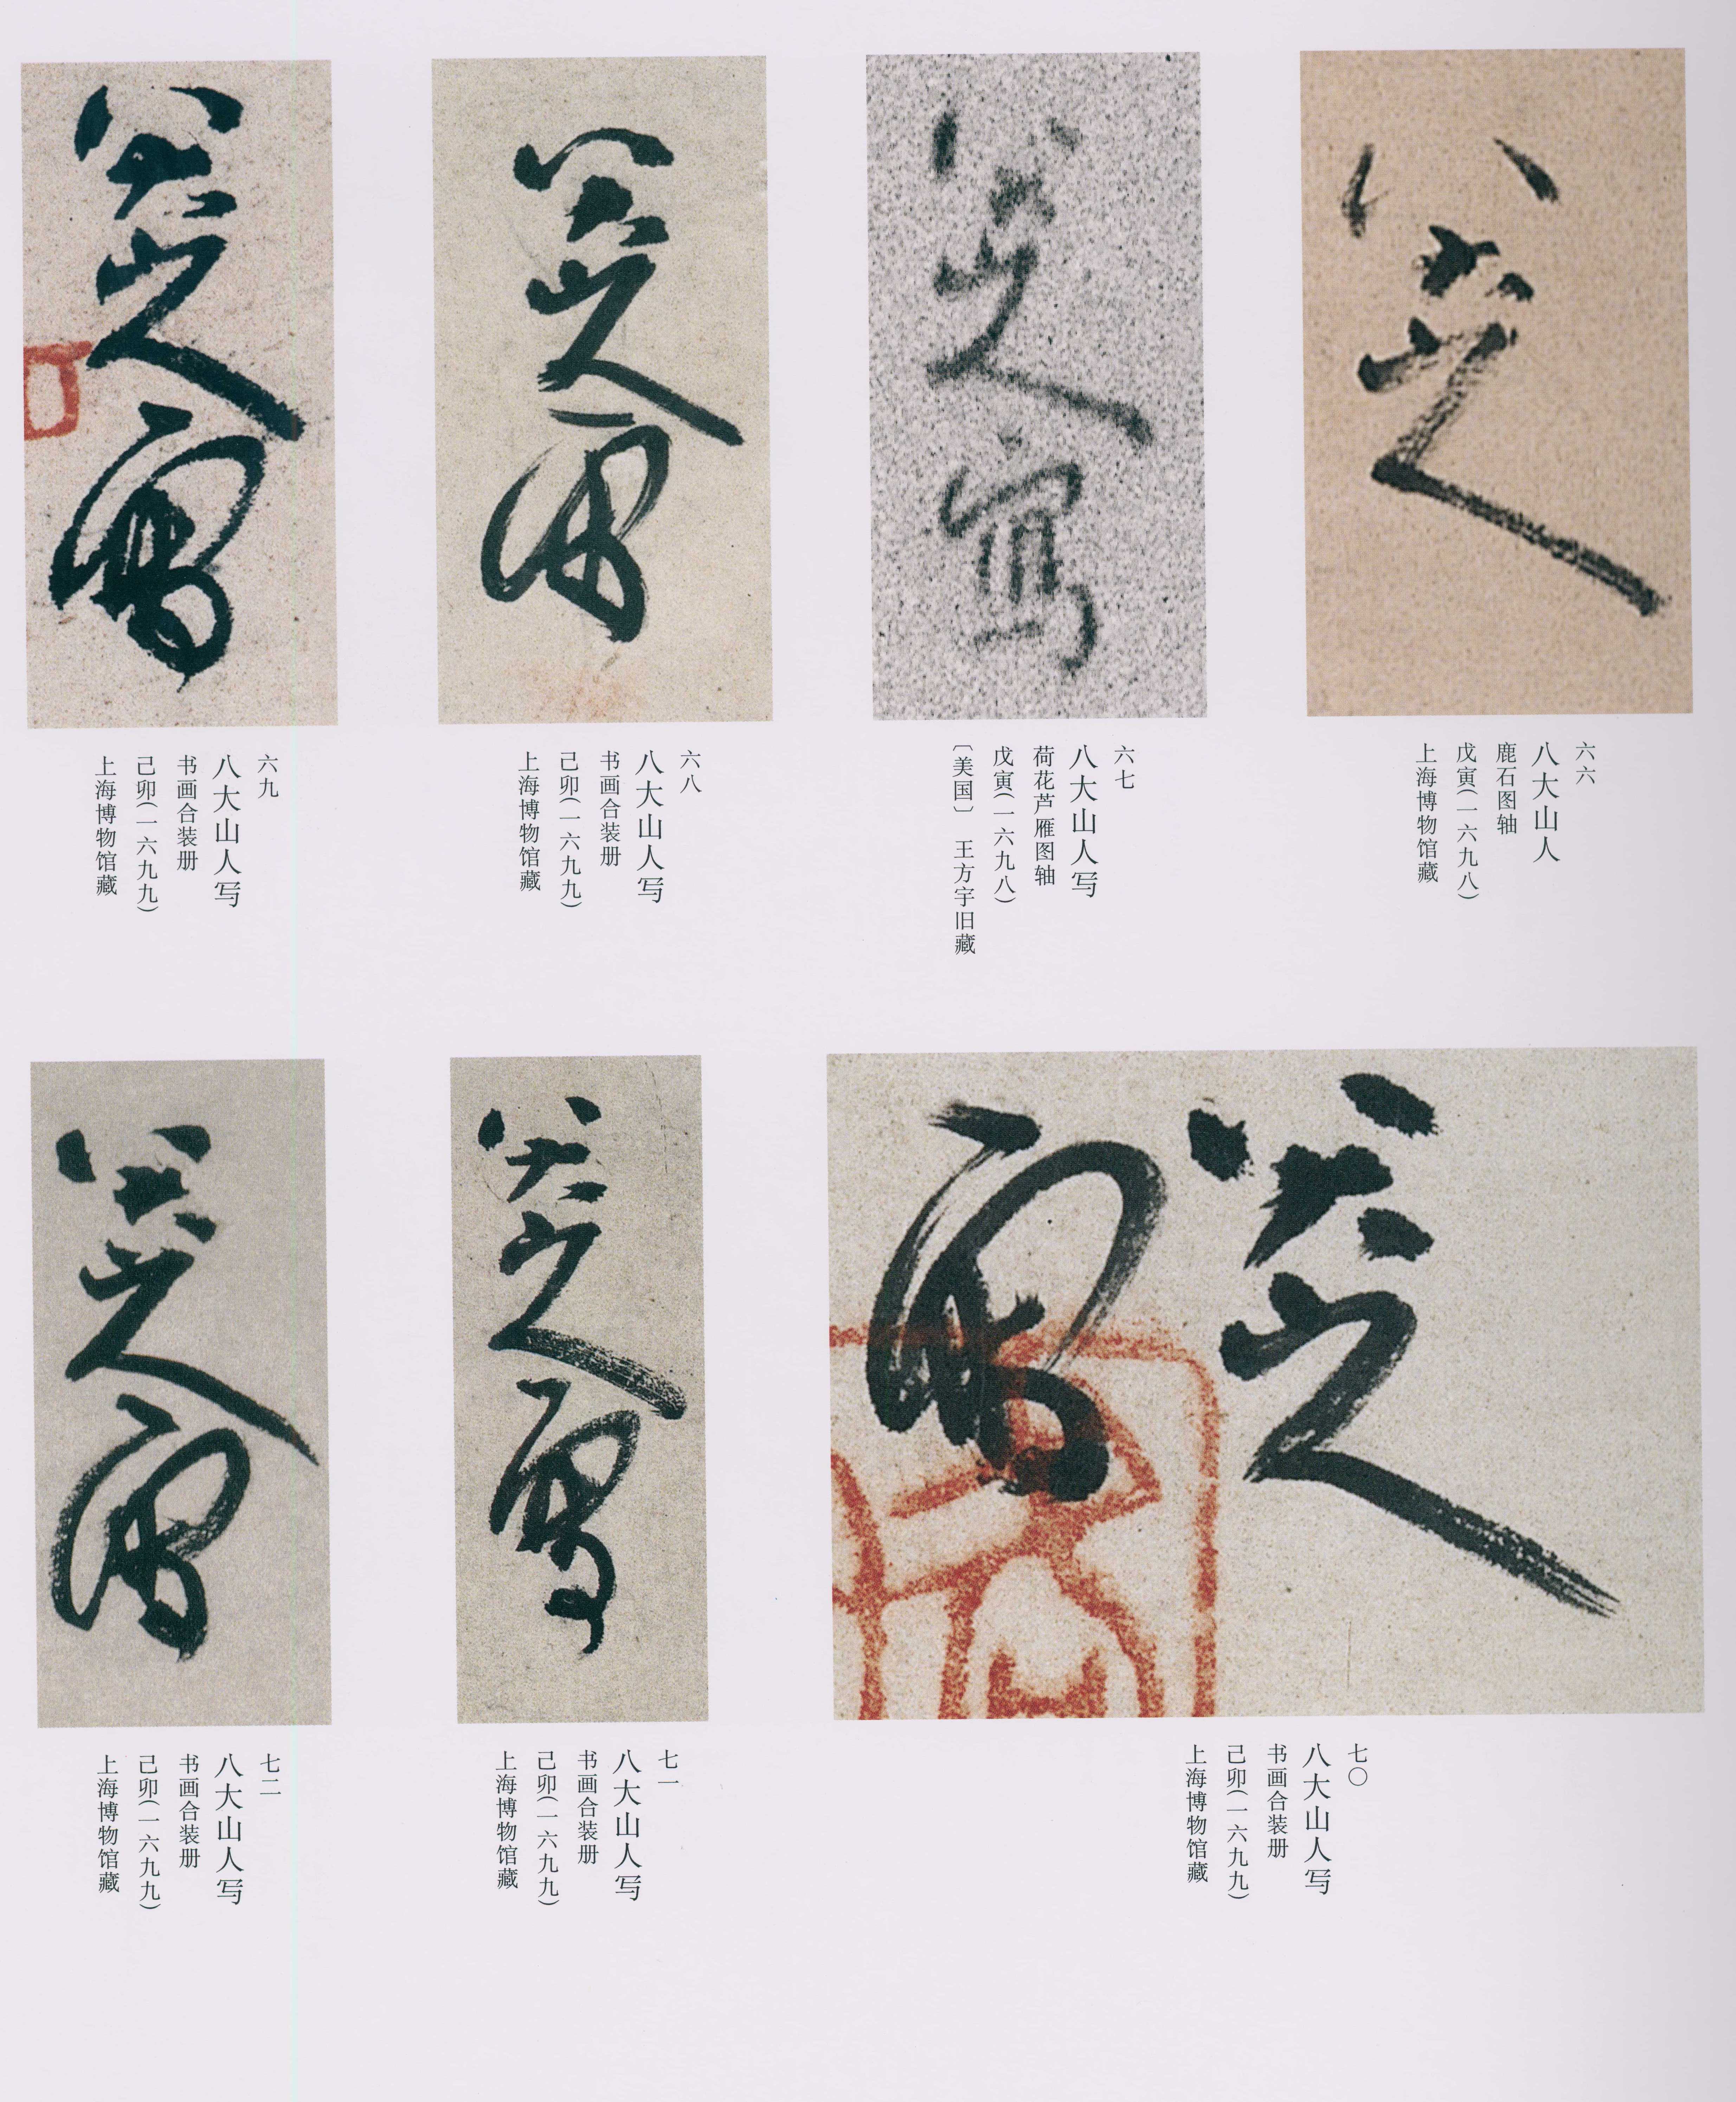 八大山人
六六
八大山人
鹿石图轴
戊寅(一六九八)
上海博物馆藏
八大山人写
六七
八大山人写
荷花芦雁图轴
戊寅(一六九八)
〔美国〕 王方宇旧藏
八大山人写
六八
八大山人写
书画合装册
己卯(一六九九)
上海博物馆藏
八大山人写
六九
八大山人写
书画合装册
己卯(一六九九)
上海博物馆藏
八大山人
写
七〇
八大山人写
书画合装册
己卯(一六九九)
上海博物馆藏
八大山人写
七一
八大山人写
书画合装册
己卯(一六九九)
上海博物馆藏
八大山人写
七二
八大山人写
书画合装册
己卯(一六九九)
上海博物馆藏